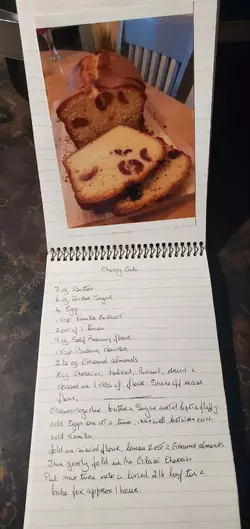 Cherry Cake
7 oz Butter
6 oz Caster Sugar
4 Eggs
1 tsp Vanilla Extract
Zest of 1 Lemon
9 oz Self Raising flour
1 tsp Baking Powder
2 ½ oz Ground almonds
8 oz Cherries, halved, Rinsed, dried &
tossed in 1 tbs of flour. Shake off excess
flour.
Cream together butter & Sugar until light & fluffy.
add Eggs one at a time, mix well between each
add Vanilla
fold in sieved flour, lemon Zest & Ground almonds
Then gently fold in the Glacé Cherries
Put mixture into a lined 2lb loaf tin &
bake for approx 1 hour.